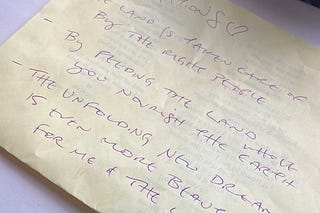 LAND IS TAKEN CARE OF
BY THE RIGHT PEOPLE
- BY FEEDING THE LAND
YOU NOURISH THE WHOLE EARTH
- THE UNFOLDING NEW DREAM
IS EVEN MORE
FOR ME & THE